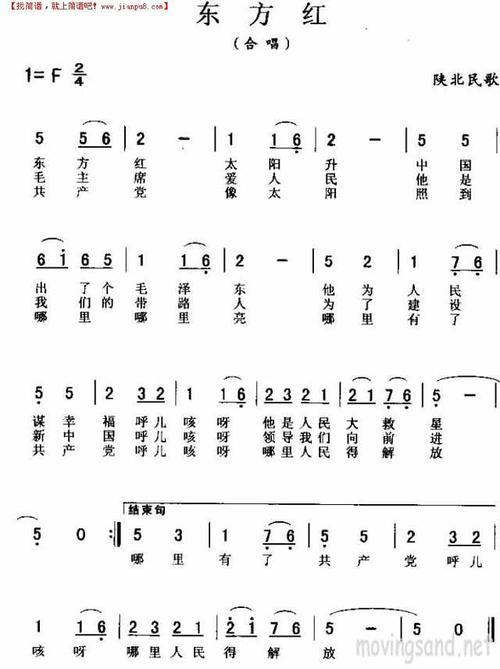 【找简谱，就上简谱吧！www.jianpu8.com】
东方红
（合唱）
1=F 2/4
陕北民歌
5 5 6 | 2 － | 1 1 6 | 2 － | 5 5 |
东 方 红 太 阳 升 中 国
毛 主 席 爱 人 民 他 是
共 产 党 像 太 阳 照 到
6 i 6 5 | 1 1 6 | 2 － | 5 2 | 1 7 6 |
出 了 个 毛 泽 东 他 为 人 民
我 们 的 带 路 人 为 了 建 设
哪 里 哪 里 亮 哪 里 有 了
5 5 | 2 3 2 | 1 1 6 | 2 3 2 1 | 2 1 7 6 | 5 － |
谋 幸 福 呼 儿 咳 呀 他 是 人 民 大 救 星
新 中 国 呼 儿 咳 呀 领 导 我 们 向 前 进
共 产 党 呼 儿 咳 呀 哪 里 人 民 得 解 放
结束句
5 0 :| 5 3 | 2 1 7 6 | 5 5 | 2 3 2 |
哪 里 有 了 共 产 党 呼 儿
1 1 6 | 2 3 2 1 | 2 1 7 6 | 5 － | 5 0 |
咳 呀 哪 里 人 民 得 解 放
movingsand.net